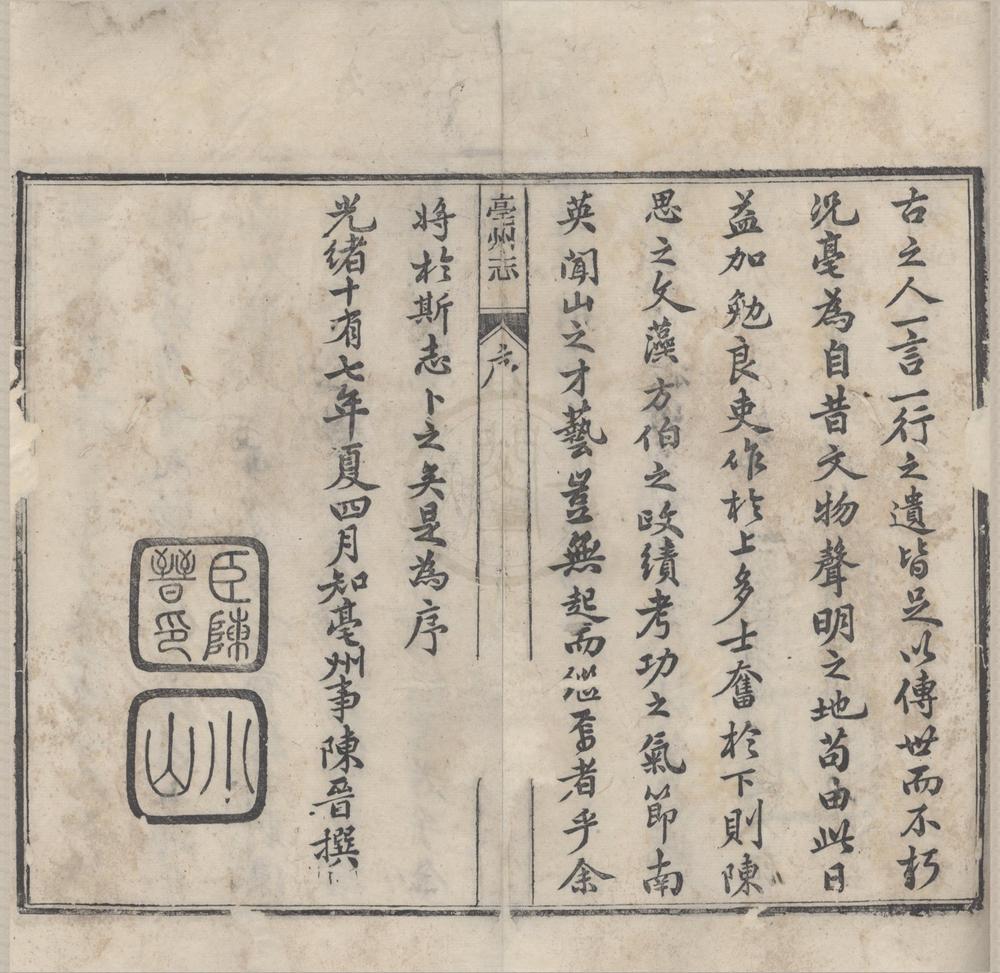 古之人一言一行之遺皆足以傳世而不朽
況亳為自昔文物聲明之地苟由此日
益加勉良吏作於上多士奮於下則陳
思之文藻方伯之政績考功之氣節南
英聞山之才藝豈無起而繼焉者乎余
亳州志
六
將於斯志卜之矣是為序
光緒十有七年夏四月知亳州事陳晉撰
臣陳
晉印
小山